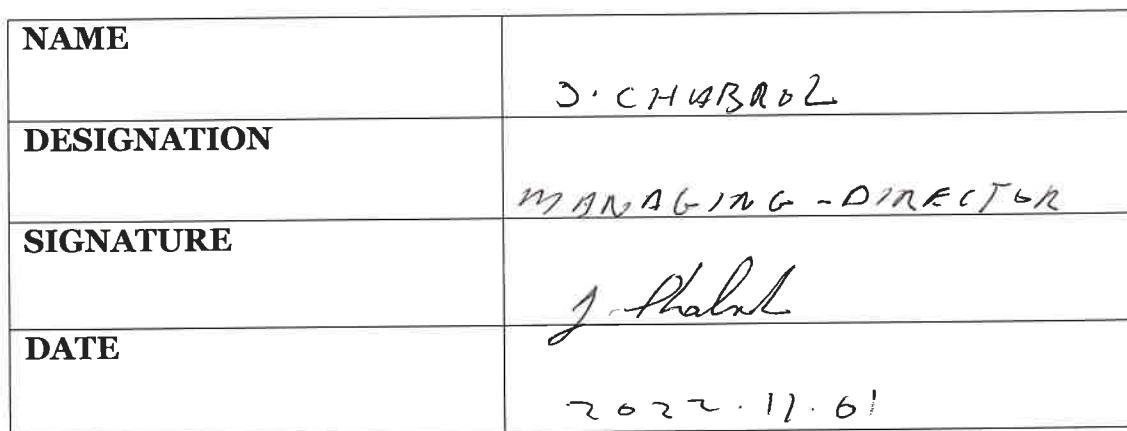 NAME
J. CHABROL
DESIGNATION
MANAGING-DIRECTOR
SIGNATURE
DATE
2022.11.01